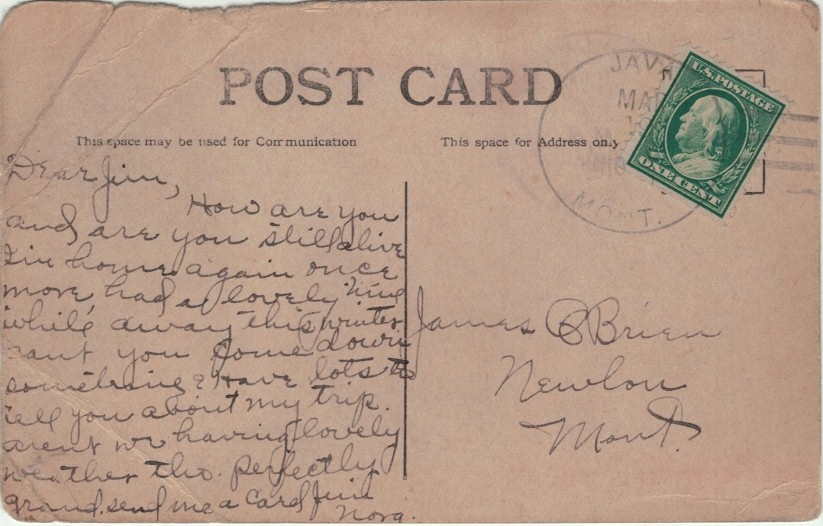 POST CARD
This space may be used for Communication
This space for Address only
JAVA
MAR
MONT.
U.S. POSTAGE
ONE CENT
Dear Jim,
How are you
and are you still alive
I'm home again once
more, had a lovely time
while away this winter.
cant you come down
sometime? Have lots to
tell you about my trip.
arent we having lovely
weather tho. perfectly
grand. send me a card Jim
Nora.
James O'Brien
Newlon
Mont.